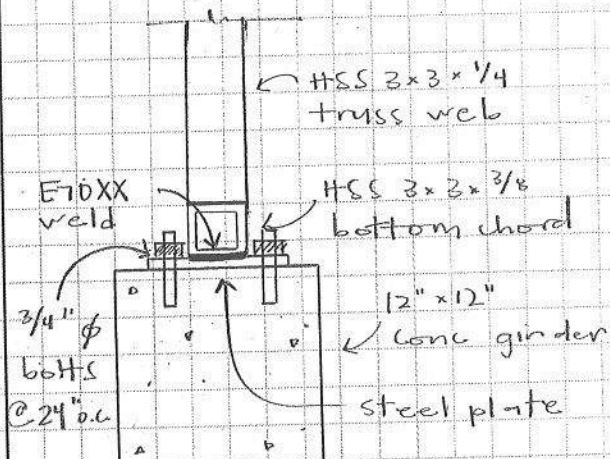 HSS 3 x 3 x 1/4
truss web
E70XX
weld
HSS 3 x 3 x 3/8
bottom chord
3/4" φ
bolts
@ 24" o.c.
12" x 12"
conc girder
steel plate